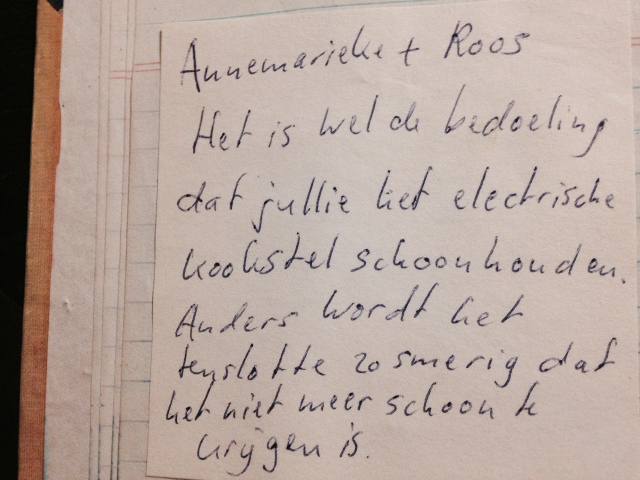 Annemarieke + Roos
Het is wel de bedoeling
dat jullie het electrische
kookstel schoonhouden.
Anders wordt het
tenslotte zo smerig dat
het niet meer schoon te
krijgen is.